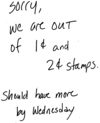 Sorry,
we are OUT
of 1¢ and
2¢ stamps.
Should have more
by Wednesday